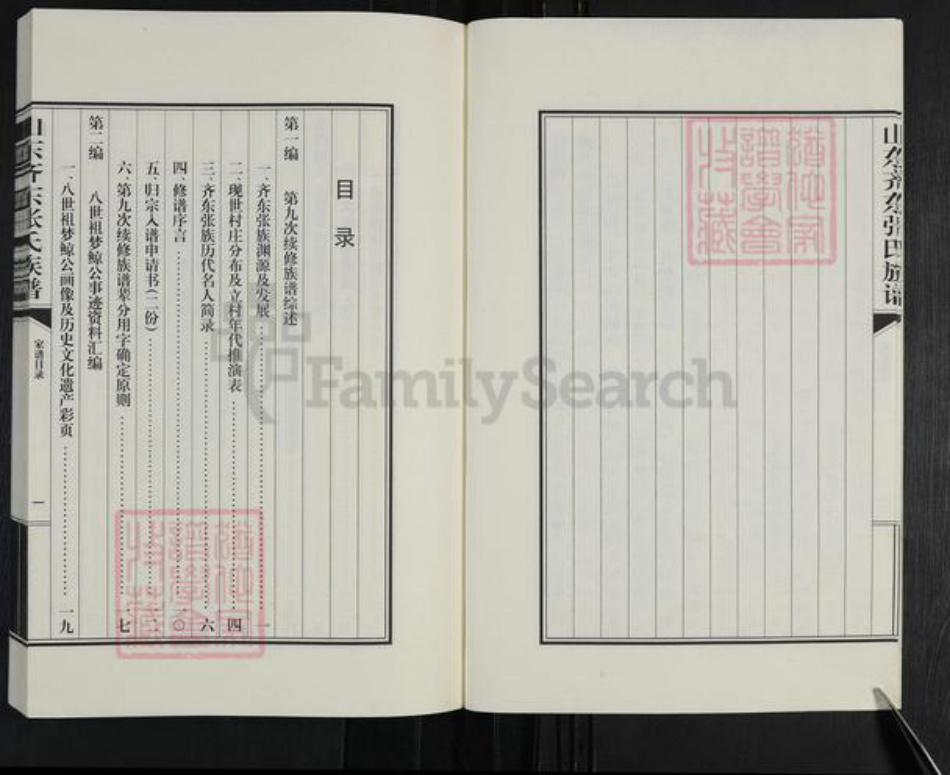 山东齐东张氏族谱
目录
第一编 第九次续修族谱综述
一、齐东张族渊源及发展 一
二、现世村庄分布及立村年代推演表 四
三、齐东张族历代名人简录 六
四、修谱序言 一〇
五、归宗入谱申请书(二份)
六、第九次续修族谱辈分用字确定原则 一七
第二编 八世祖梦鲸公事迹资料汇编
一、八世祖梦鲸公画像及历史文化遗产彩页 一九
山东齐东张氏族谱
家谱目录
一
FamilySearch